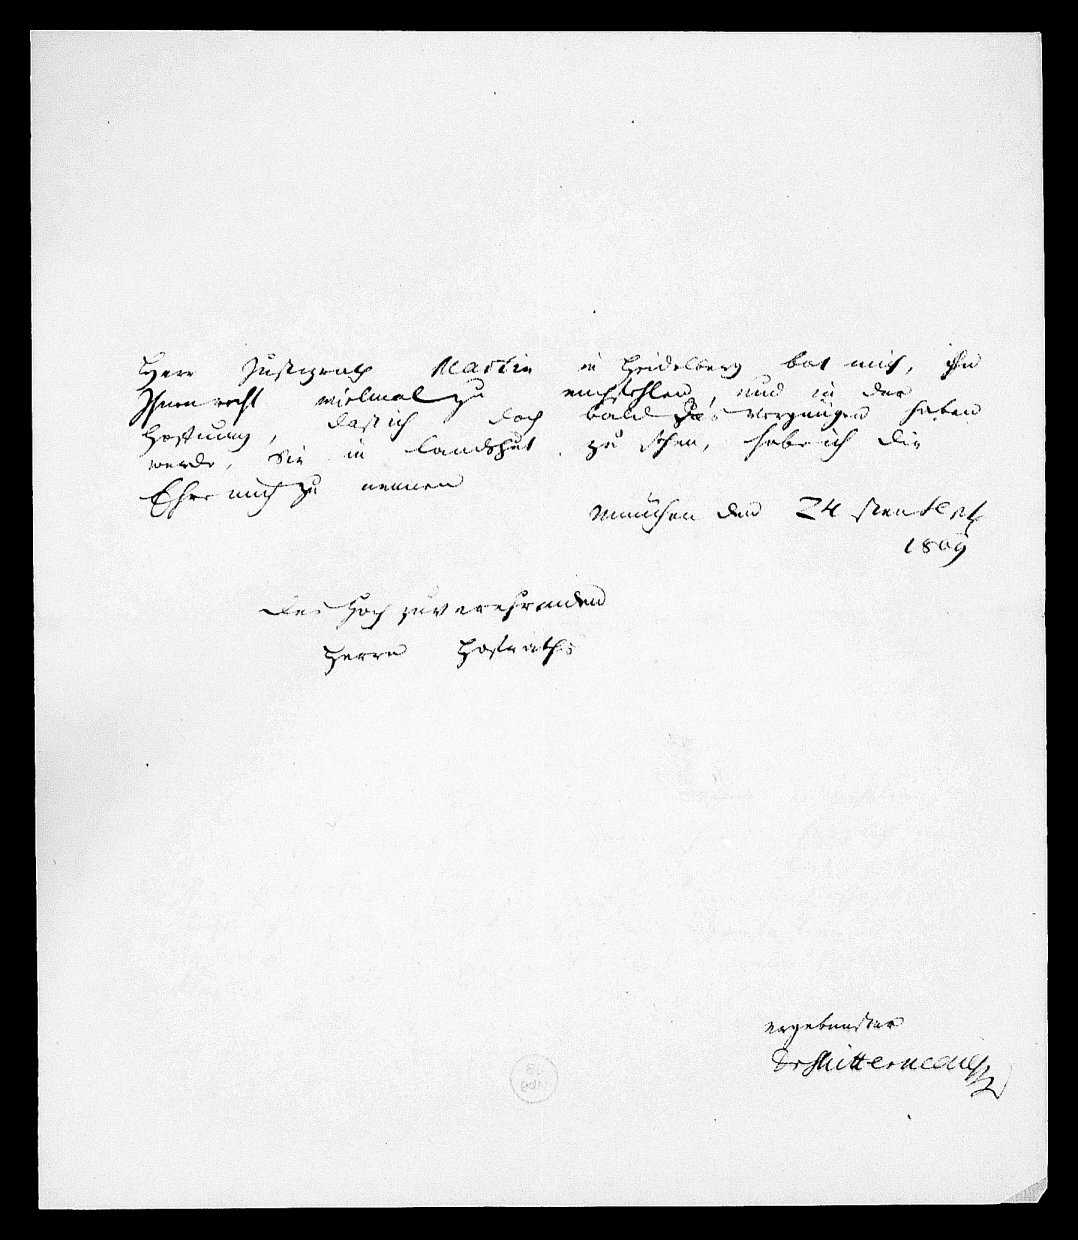 Herr Justizrath Martin in Heidelberg bat mich, ihn
Ihnen recht vielmal zu empfehlen, und in der
Hoffnung, daß ich doch bald das Vergnügen haben
werde, Sie in Landshut zu sehen, habe ich die
Ehre mich zu nennen
München den 24 sten Sept
1809
Des Hochzuverehrenden
Herrn Hofraths
ergebenster
Dr Mittermaier